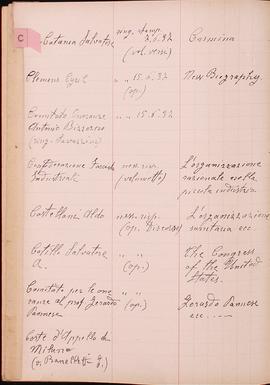 C
Catania Salvatore
ring. stamp. 2.6.32 (vol. versi)
Carmina
Clemens Cyril
" " 15.6.32 (op.)
New Biography
Comitato Onoranze
Antonio
(ring.
" " 15.6.32
Confederazione Fascista
Industriale
(volumetto)
L'organizzazione
razionale nella
piccola industria
Castellani Aldo
(op. Discorso)
L'organizzazione
sanitaria ecc.
Cotillo Salvatore
A.
" " (op.)
The Congress
of the United
States.
Comitato per le ono
ranze al prof. Gerardo
" " (op.)
Gerardo
ecc.
Corte d'Appello di
Milano